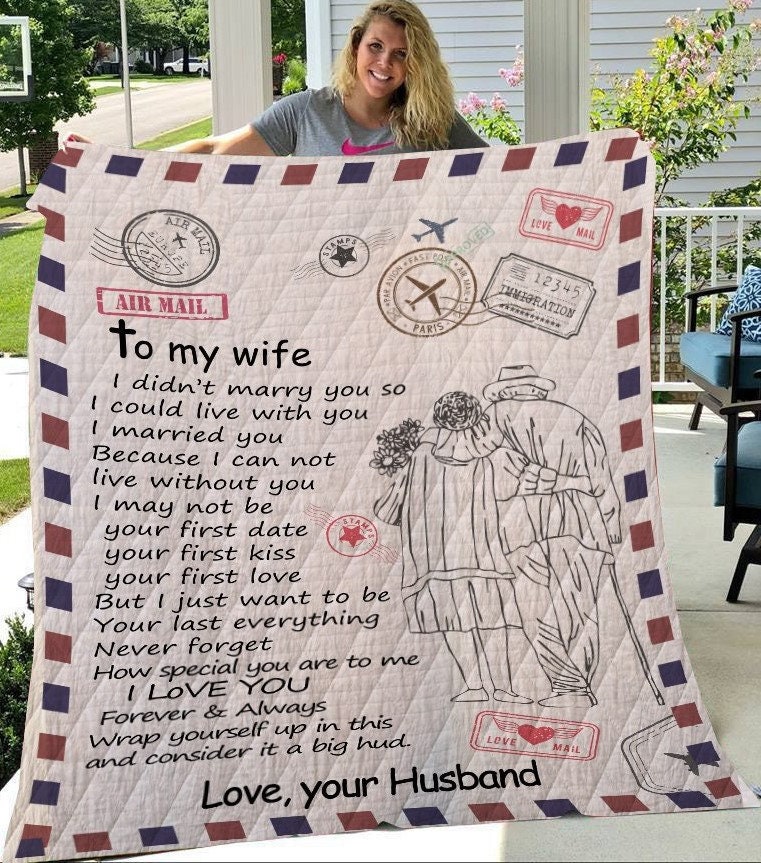 AIR MAIL
AIR MAIL
STAMPS
PAR AVION ★ FAST POST ★ AIR MAIL
PARIS
12345
IMMIGRATION
LOVE MAIL
To my wife
I didn't marry you so
I could live with you
I married you
Because I can not
live without you
I may not be
your first date
your first kiss
your first love
But I just want to be
Your last everything
Never forget
How special you are to me
I LOVE YOU
Forever & Always
Wrap yourself up in this
and consider it a big hud.
Love, your Husband
STAMPS
LOVE MAIL